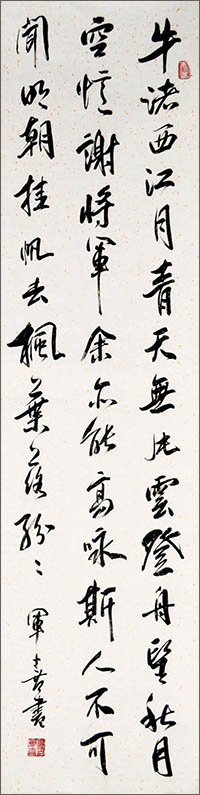 牛渚西江月青天無片雲登舟望秋月
空憶謝將軍余亦能高咏斯人不可
聞明朝挂帆去楓葉落紛〻
軍喜書